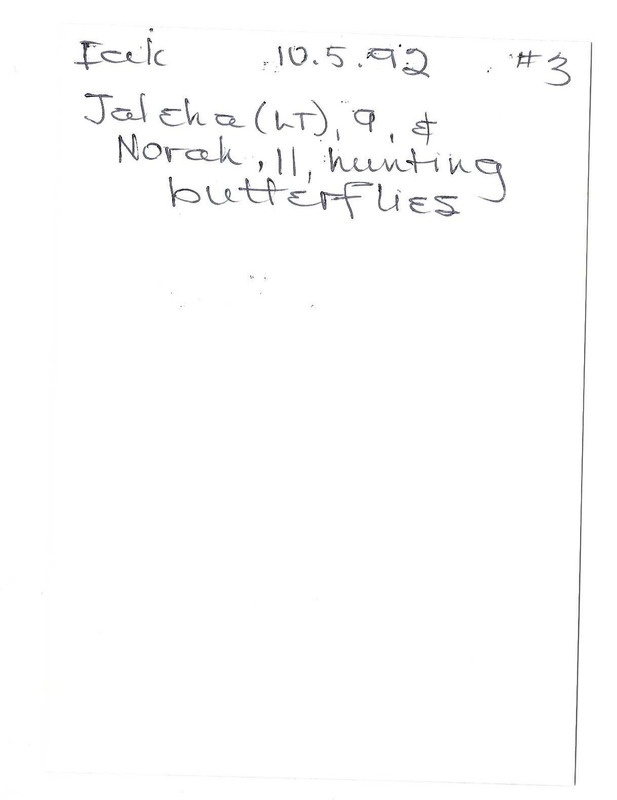 10.5.92 #3
Jaleha (LT), 9, &
Norah, 11, hunting
butterflies